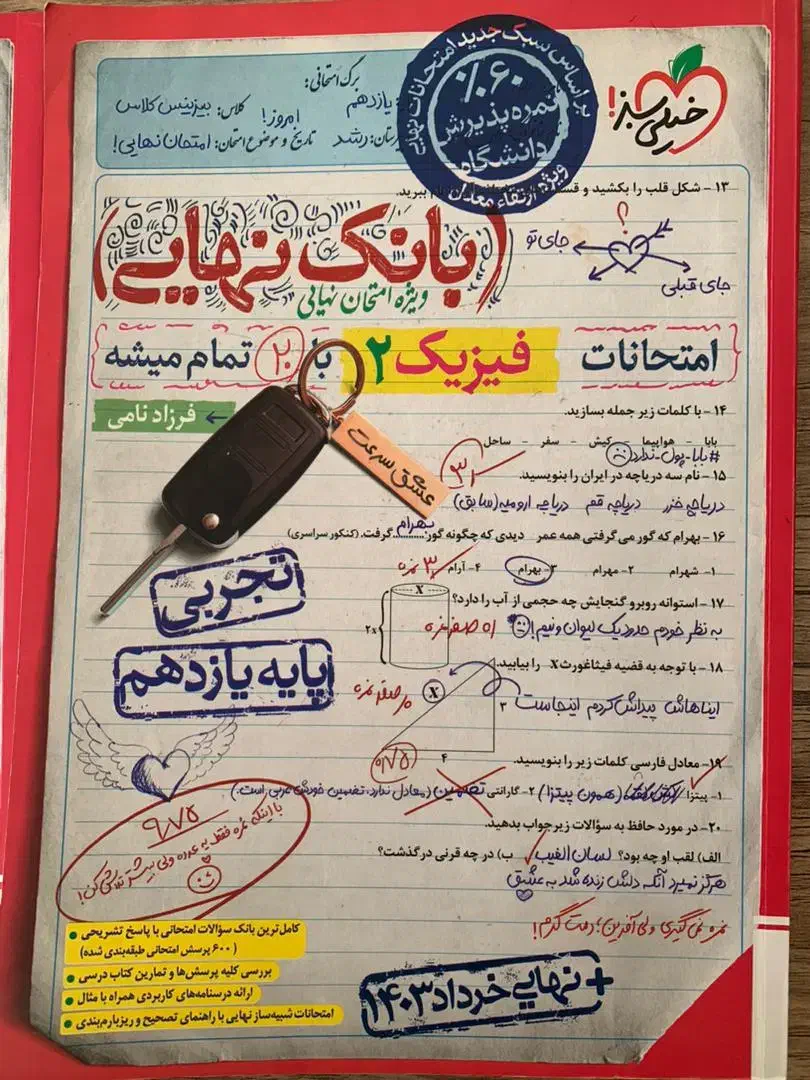 بر اساس سبک جدید امتحانات نهایی
۶۰٪
نمره پذیرش
دانشگاه
ویژه ارتقاء معدل
خیلی سبز!
برگ امتحانی:
یازدهم
کلاس: بیزینس کلاس
امروز!
رشد
تاریخ و موضوع امتحان: امتحان نهایی!
۱۳ - شکل قلب را بکشید و
ببرید.
؟
جای تو
جای قبلی
(بانک نهایی)
ویژه امتحان نهایی
امتحانات فیزیک ۲ با ۲۰ تمام میشه
فرزاد نامی
عشق سرعت
۱۴ - با کلمات زیر جمله بسازید.
بابا - هواپیما - کیش - سفر - ساحل
#بابا-پول-ندارد
۱۵ - نام سه دریاچه در ایران را بنویسید.
دریاچه خزر دریاچه قم دریاچه ارومیه (سابق)
۱۶ - بهرام که گور می گرفتی همه عمر دیدی که چگونه گور بهرام گرفت. (کنکور سراسری)
۱- شهرام ۲- مهرام ۳- بهرام ۴- آرام
۳ نمره
۱۷ - استوانه روبرو گنجایش چه حجمی از آب را دارد؟
X
2x
به نظر خودم حدود یک لیوان و نیم!
صفر نمره
۱۸ - با توجه به قضیه فیثاغورث X را بیابید.
ایناهاش پیداش کردم اینجاست
X
۳
۴
صفر نمره
۰/۷۵
۱۹ - معادل فارسی کلمات زیر را بنویسید.
۱- پیتزا (همون پیتزا) ۲- گارانتی تضمین (معادل ندارد، تضمین خودش عربی است.)
۲۰- در مورد حافظ به سؤالات زیر جواب بدهید.
الف) لقب او چه بود؟ لسان الغیب ب) در چه قرنی درگذشت؟
هرگز نمیرد آنکه دلش زنده شد به عشق
نمره نمی‌گیری ولی آفرین؛ دمت گرم!
تجربی
پایه یازدهم
۹/۷۵
با اینکه نمره فقط یه عدده ولی بیشتر تلاش کن!
کامل ترین بانک سؤالات امتحانی با پاسخ تشریحی
(۶۰۰ پرسش امتحانی طبقه‌بندی شده)
بررسی کلیه پرسش‌ها و تمارین کتاب درسی
ارائه درسنامه‌های کاربردی همراه با مثال
امتحانات شبیه‌ساز نهایی با راهنمای تصحیح و ریزبارم‌بندی
+ نهایی خرداد ۱۴۰۳